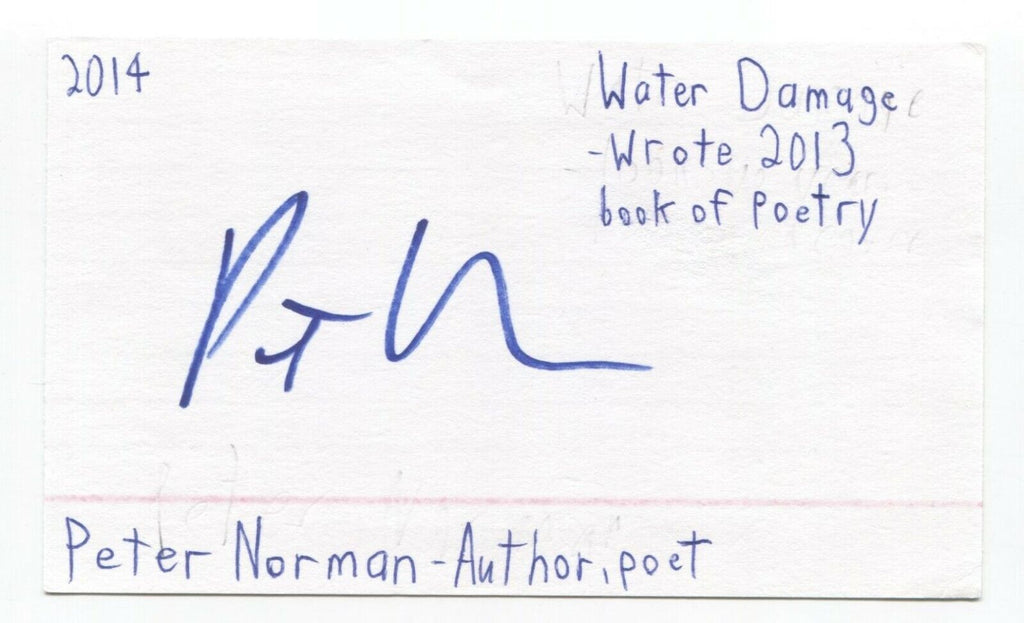 2014
Water Damage
-Wrote 2013
book of poetry
Peter Norman - Author, poet